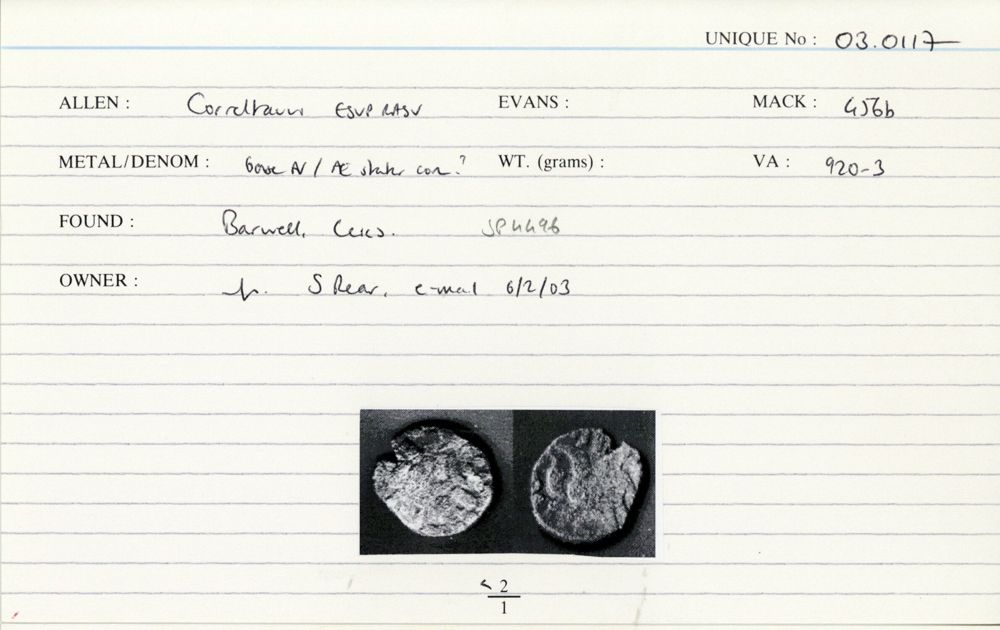 UNIQUE No : 03.0117
ALLEN : Correltauvi ESVP RASV EVANS : MACK : 456b
METAL/DENOM : base AV / AE stater core? WT. (grams) : VA : 920-3
FOUND : Barwell, Leics. SP4496
OWNER : S Rear, e-mail 6/2/03
2
1